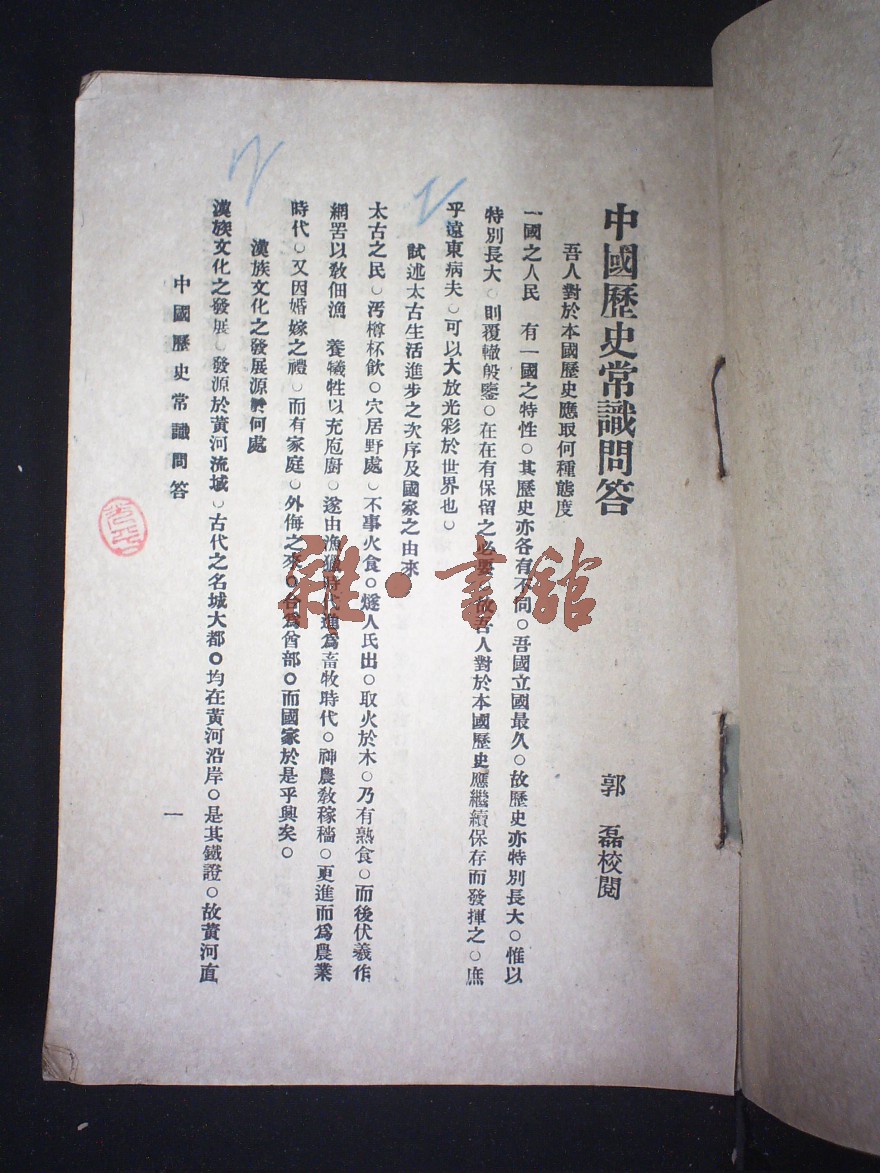 中國歷史常識問答
郭磊校閱
吾人對於本國歷史應取何種態度
一國之人民　有一國之特性○其歷史亦各有不同○吾國立國最久○故歷史亦特別長大○惟以
特別長大○則覆轍殷鑒○在在有保留之必要○故吾人對於本國歷史應繼續保存而發揮之○庶
乎遠東病夫○可以大放光彩於世界也○
試述太古生活進步之次序及國家之由來
太古之民○汚樽杯飲○穴居野處○不事火食○燧人氏出○取火於木○乃有熟食○而後伏羲作
網罟以敎佃漁　養犧牲以充庖廚○遂由漁獵時代進爲畜牧時代○神農敎稼穡○更進而爲農業
時代○又因婚嫁之禮○而有家庭○外侮之來○合爲酋部○而國家於是乎興矣○
漢族文化之發展源於何處
漢族文化之發展○發源於黃河流域○古代之名城大都○均在黃河沿岸○是其鐵證○故黃河直
中國歷史常識問答
一
雜·書館